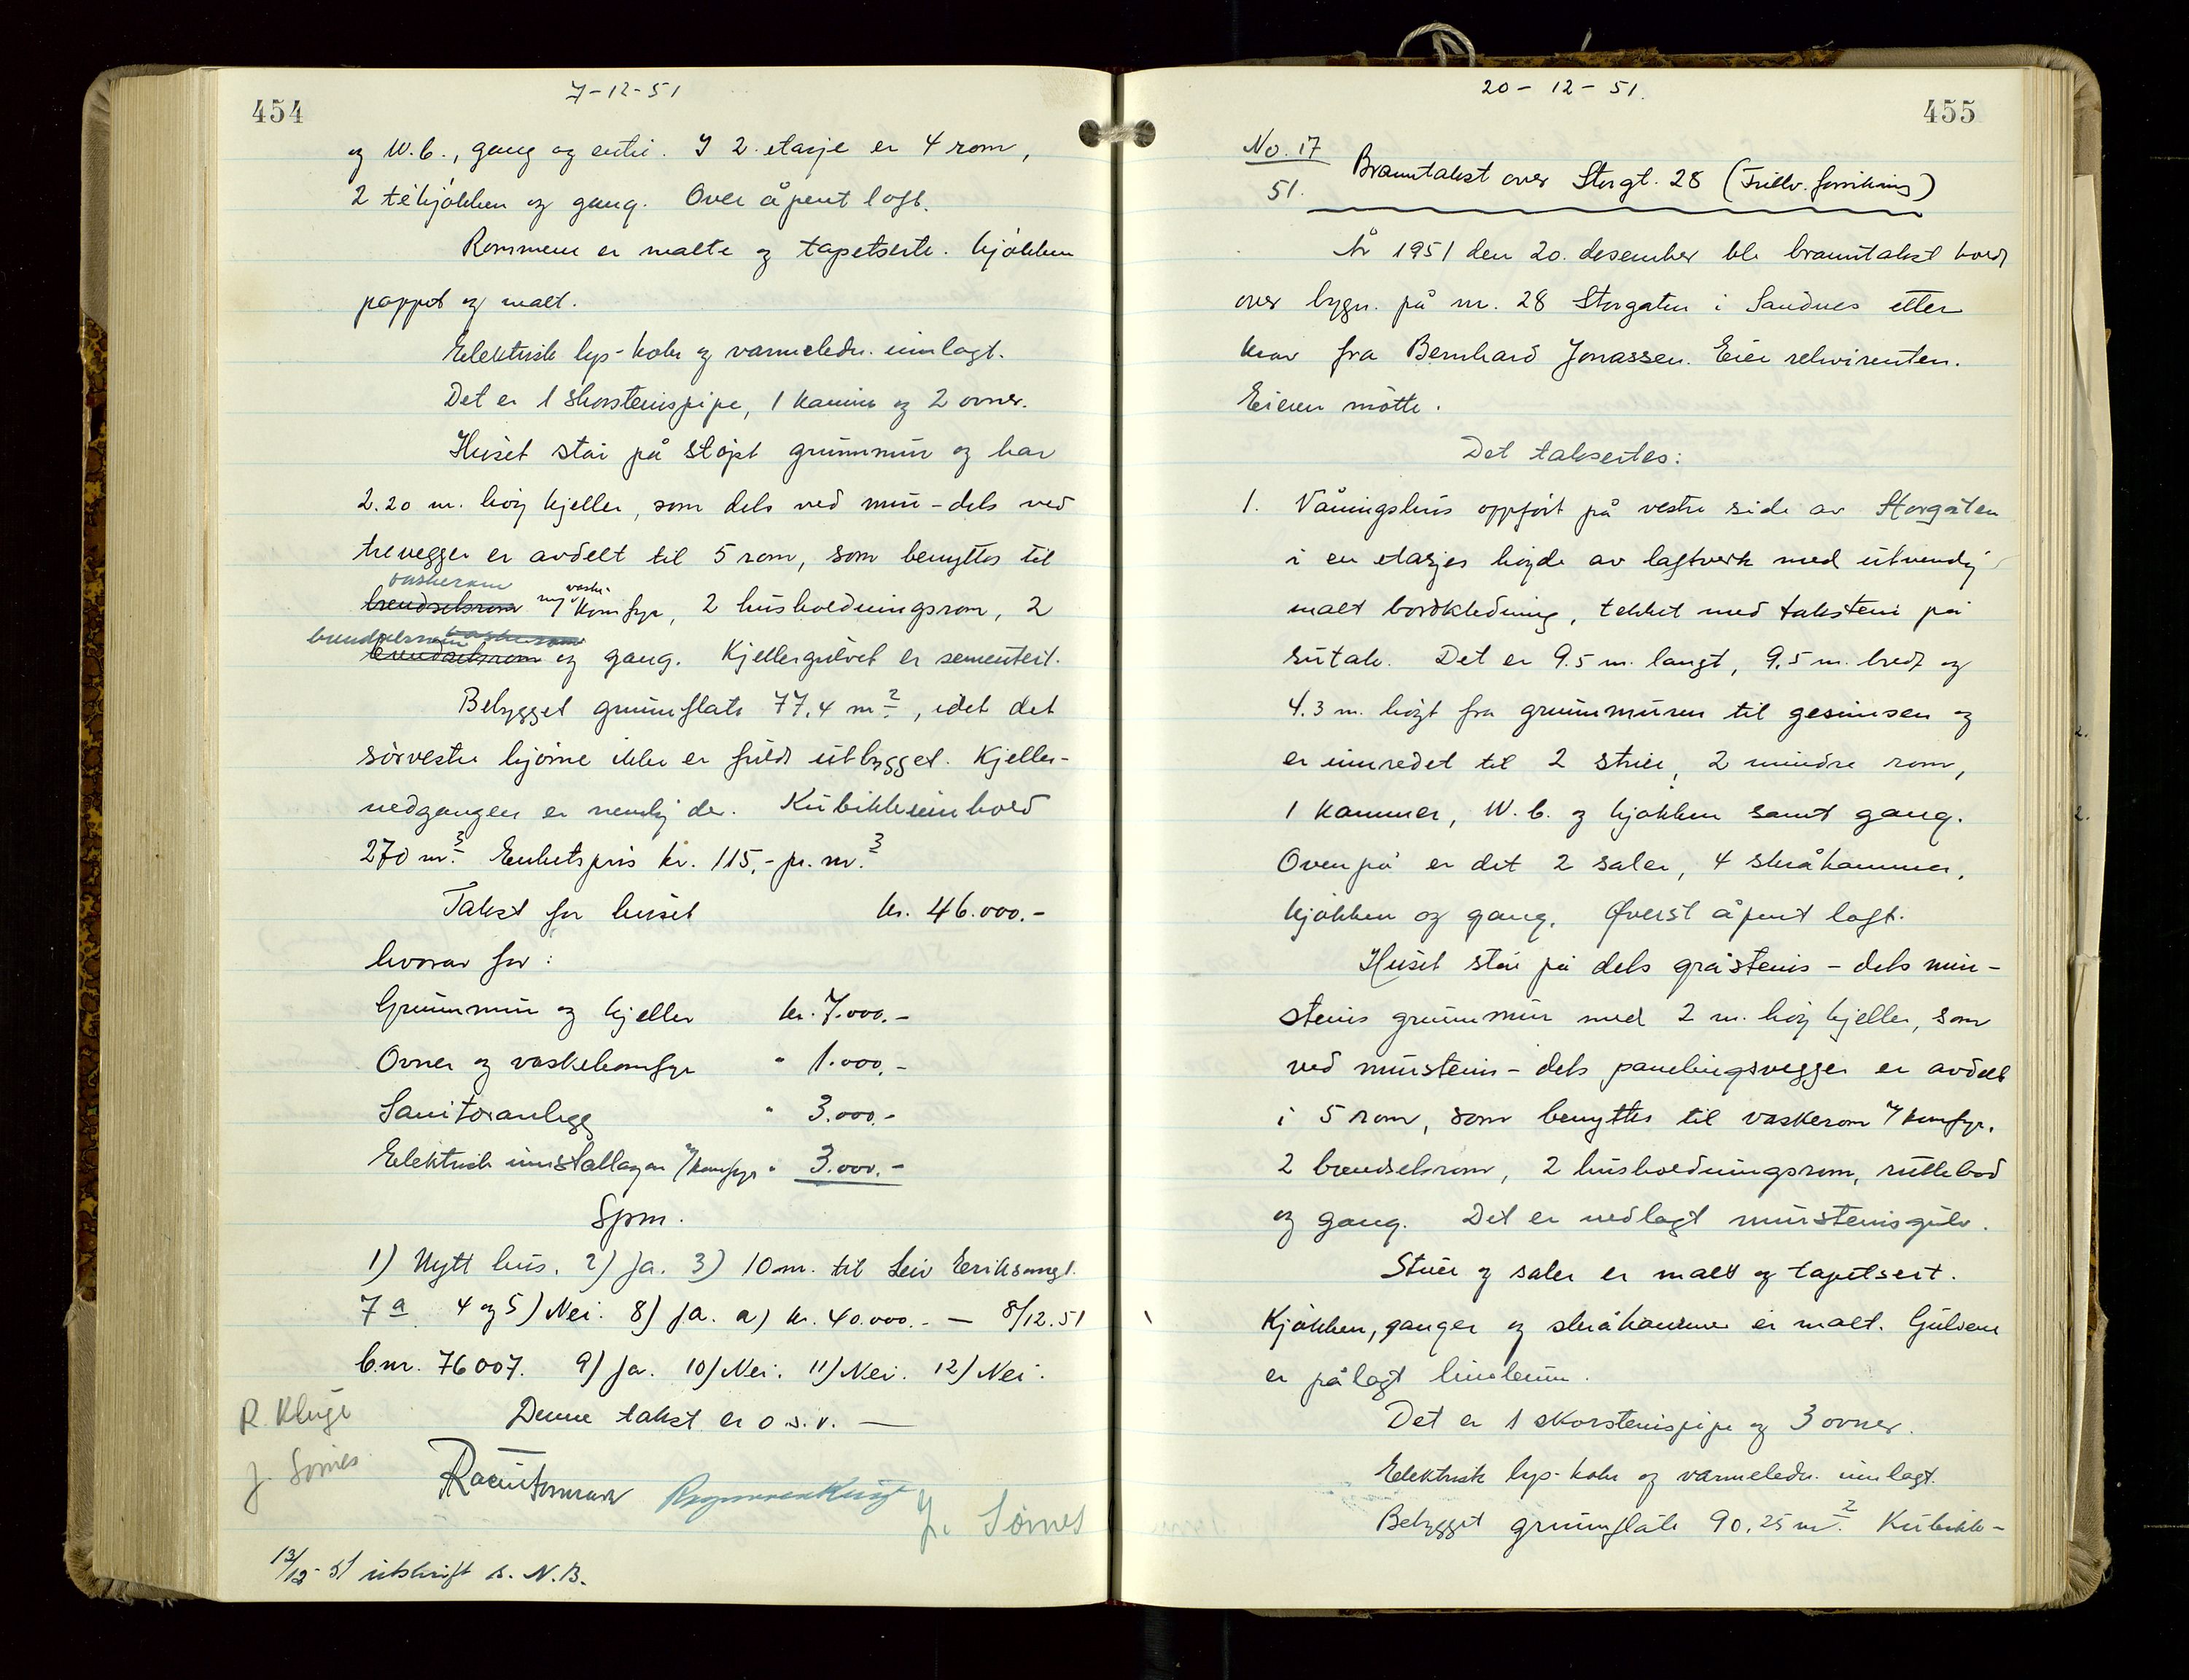 454
7-12-51
og W.C., gang og entré. I 2. etasje er 4 rom,
2 tékjøkken og gang. Over åpent loft.
Rommene er malte og tapetserte. Kjøkken
pappet og malt.
Elektrisk lys- koke og varmeledn. innlagt.
Det er 1 skorsteinspipe, 1 kamin og 2 ovner.
Huset står på støpt grunnmur og har
2.20 m. høy kjeller, som dels ved mur- dels ved
trevegger er avdelt til 5 rom, som benyttes til
vaskerom
brendselsrom m/ vaske-komfyr, 2 husholdningsrom, 2
brendselsrom vaskerom
brendselsrom og gang. Kjellergulvet er sementert.
Bebygget grunnflate 77,4 m², idet det
sørvestre hjørne ikke er fuldt utbygget. Kjeller-
nedgangen er nemlig der. Kubikkinnhold
270 m³. Enhetspris kr. 115,- pr. m.³
Takst for huset kr. 46.000.-
hvorav for:
Grunnmur og kjeller kr. 7.000.-
Ovner og vaskekomfyr " 1.000.-
Sanitæranlegg " 3.000.-
Elektrisk installasjon m/komfyr " 3.000.-
Spm.
1) Nytt hus. 2) Ja. 3) 10 m. til Leiv Eriksonsgt.
7 a. 4 og 5) Nei. 8) Ja. a) kr. 40.000.- — 8/12.51
b. nr. 76007. 9) Ja. 10) Nei. 11) Nei. 12) Nei.
Denne takst er o.s.v. —
R. Kluge
J. Sømes
J. Sømes
13/12-51 utskrift s. N.B.
455
20-12-51.
No. 17
51.
Branntakst over Storgt. 28 (Frillv. forsikring)
År 1951 den 20. desember ble branntakst holdt
over bygn. på nr. 28 Storgaten i Sandnes etter
krav fra Bernhard Jonassen. Eier rekvirenten.
Eieren møtte.
Det taksertes:
1. Våningshus oppført på vestre side av Storgaten
i en etasjes høyde av laftverk med utvendig
malt bordkledning, tekket med takstein på
sutak. Det er 9.5 m. langt, 9,5 m. bredt og
4.3 m. høgt fra grunnmuren til gesimsen og
er innredet til 2 stuer, 2 mindre rom,
1 kammer, W.C. og kjøkken samt gang.
Ovenpå er det 2 saler, 4 skråkammer,
kjøkken og gang. Øverst åpent loft.
Huset står på dels gråsteins- dels mur-
steins grunnmur med 2 m. høy kjeller, som
ved mursteins- dels panelingsvegger er avdelt
i 5 rom, som benyttes til vaskerom m/komfyr,
2 brendselsrom, 2 husholdningsrom, rullebod
og gang. Det er nedlagt mursteinsgulv.
Stuer og saler er malt og tapetsert.
Kjøkken, ganger og skråkammer er malt. Gulvene
er pålagt linoleum.
Det er 1 skorsteinspipe og 3 ovner.
Elektrisk lys- koke og varmeledn. innlagt.
Bebygget grunnflate 90,25 m². Kubikk-